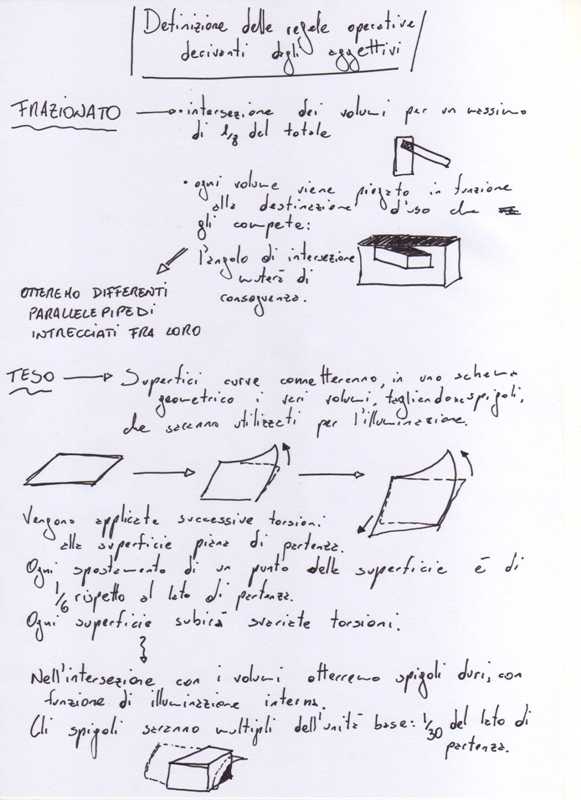 Definizione delle regole operative
derivanti dagli aggettivi
FRAZIONATO
• intersezione dei volumi per un massimo
di 1/8 del totale
• ogni volume viene piegato in funzione
alla destinazione d'uso che
gli compete:
l'angolo di intersezione
muterà di
conseguenza.
OTTEREMO DIFFERENTI
PARALLELEPIPEDI
INTRECCIATI FRA LORO
TESO
Superfici curve connetteranno, in uno schema
geometrico i vari volumi, tagliandone spigoli,
che saranno utilizzati per l'illuminazione.
Vengono applicate successive torsioni
alla superficie piana di partenza.
Ogni spostamento di un punto della superficie è di
1/6 rispetto al lato di partenza.
Ogni superficie subirà svariate torsioni.
Nell'intersezione con i volumi otterremo spigoli duri, con
funzione di illuminazione interna.
Gli spigoli saranno multipli dell'unità base: 1/30 del lato di
partenza.